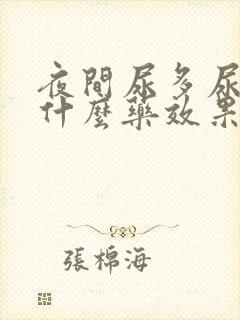 夜間尿多尿
什麼藥效果
張棉海